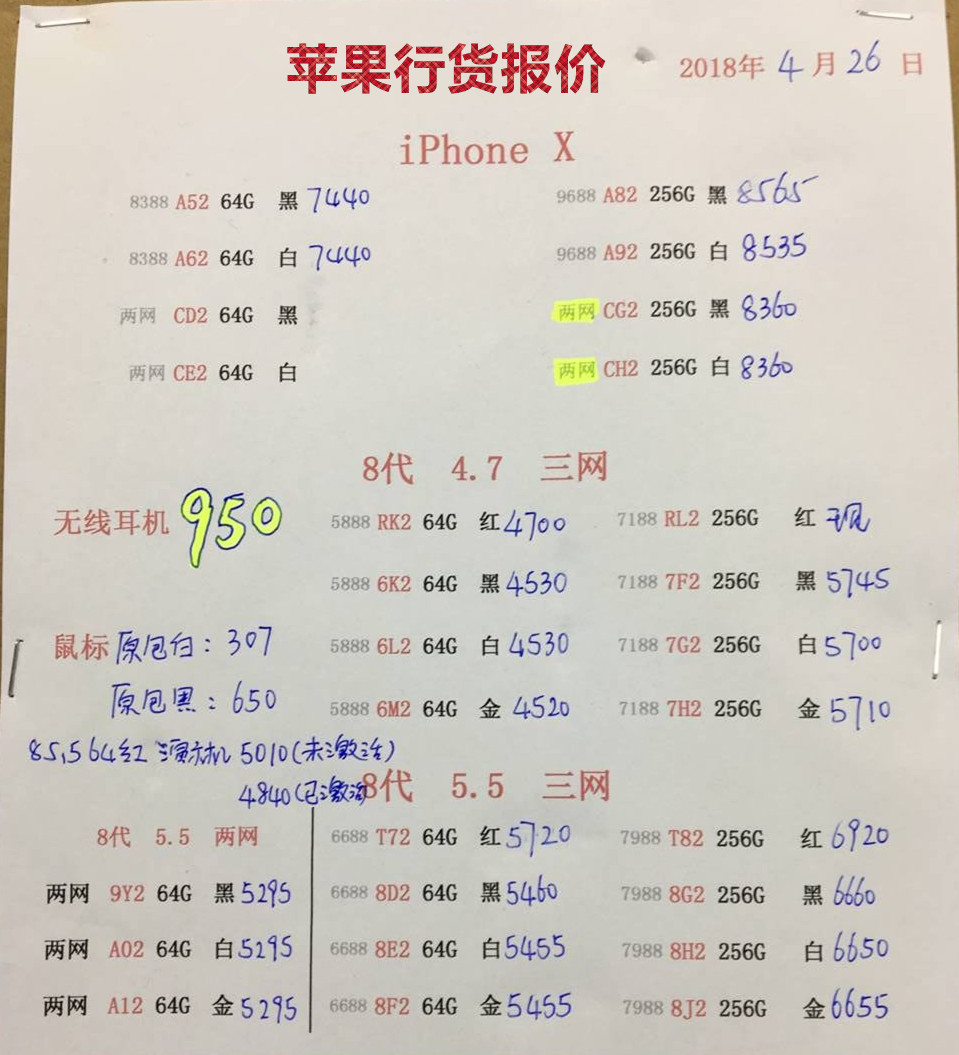 苹果行货报价
2018年 4 月 26 日
iPhone X
8388 A52 64G 黑 7440
9688 A82 256G 黑 8565
8388 A62 64G 白 7440
9688 A92 256G 白 8535
两网 CD2 64G 黑
两网 CG2 256G 黑 8360
两网 CE2 64G 白
两网 CH2 256G 白 8360
8代 4.7 三网
无线耳机 950
5888 RK2 64G 红 4700
7188 RL2 256G 红 现
5888 6K2 64G 黑 4530
7188 7F2 256G 黑 5745
鼠标 原包白: 307
5888 6L2 64G 白 4530
7188 7G2 256G 白 5700
原包黑: 650
5888 6M2 64G 金 4520
7188 7H2 256G 金 5710
85.5 64红 演示机 5010(未激活)
4840(已激活
8代 5.5 三网
8代 5.5 两网
6688 T72 64G 红 5720
7988 T82 256G 红 6920
两网 9Y2 64G 黑 5295
6688 8D2 64G 黑 5460
7988 8G2 256G 黑 6660
两网 A02 64G 白 5295
6688 8E2 64G 白 5455
7988 8H2 256G 白 6650
两网 A12 64G 金 5295
6688 8F2 64G 金 5455
7988 8J2 256G 金 6655